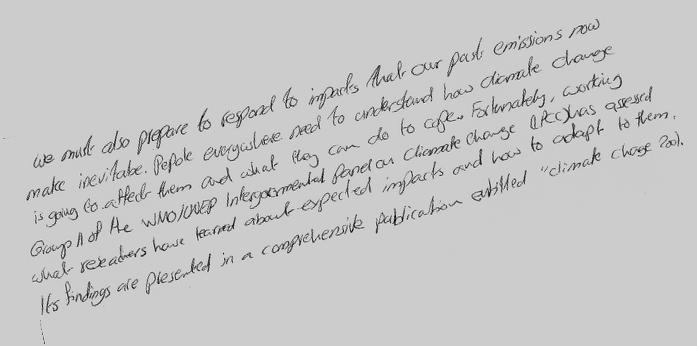 we must also prepare to respond to impacts that our past emissions now
make inevitabe. Pepole everywhere need to understand how climate change
is going to affect them and what they can do to cope. Fortunately, working
Group II of the WMO/UNEP Intergovernmental panel on Climate Change (IPCC) has assessed
what reseachers have learned about expected impacts and how to adapt to them.
Its findings are presented in a comprehensive publication entitled "climate chage 2001.